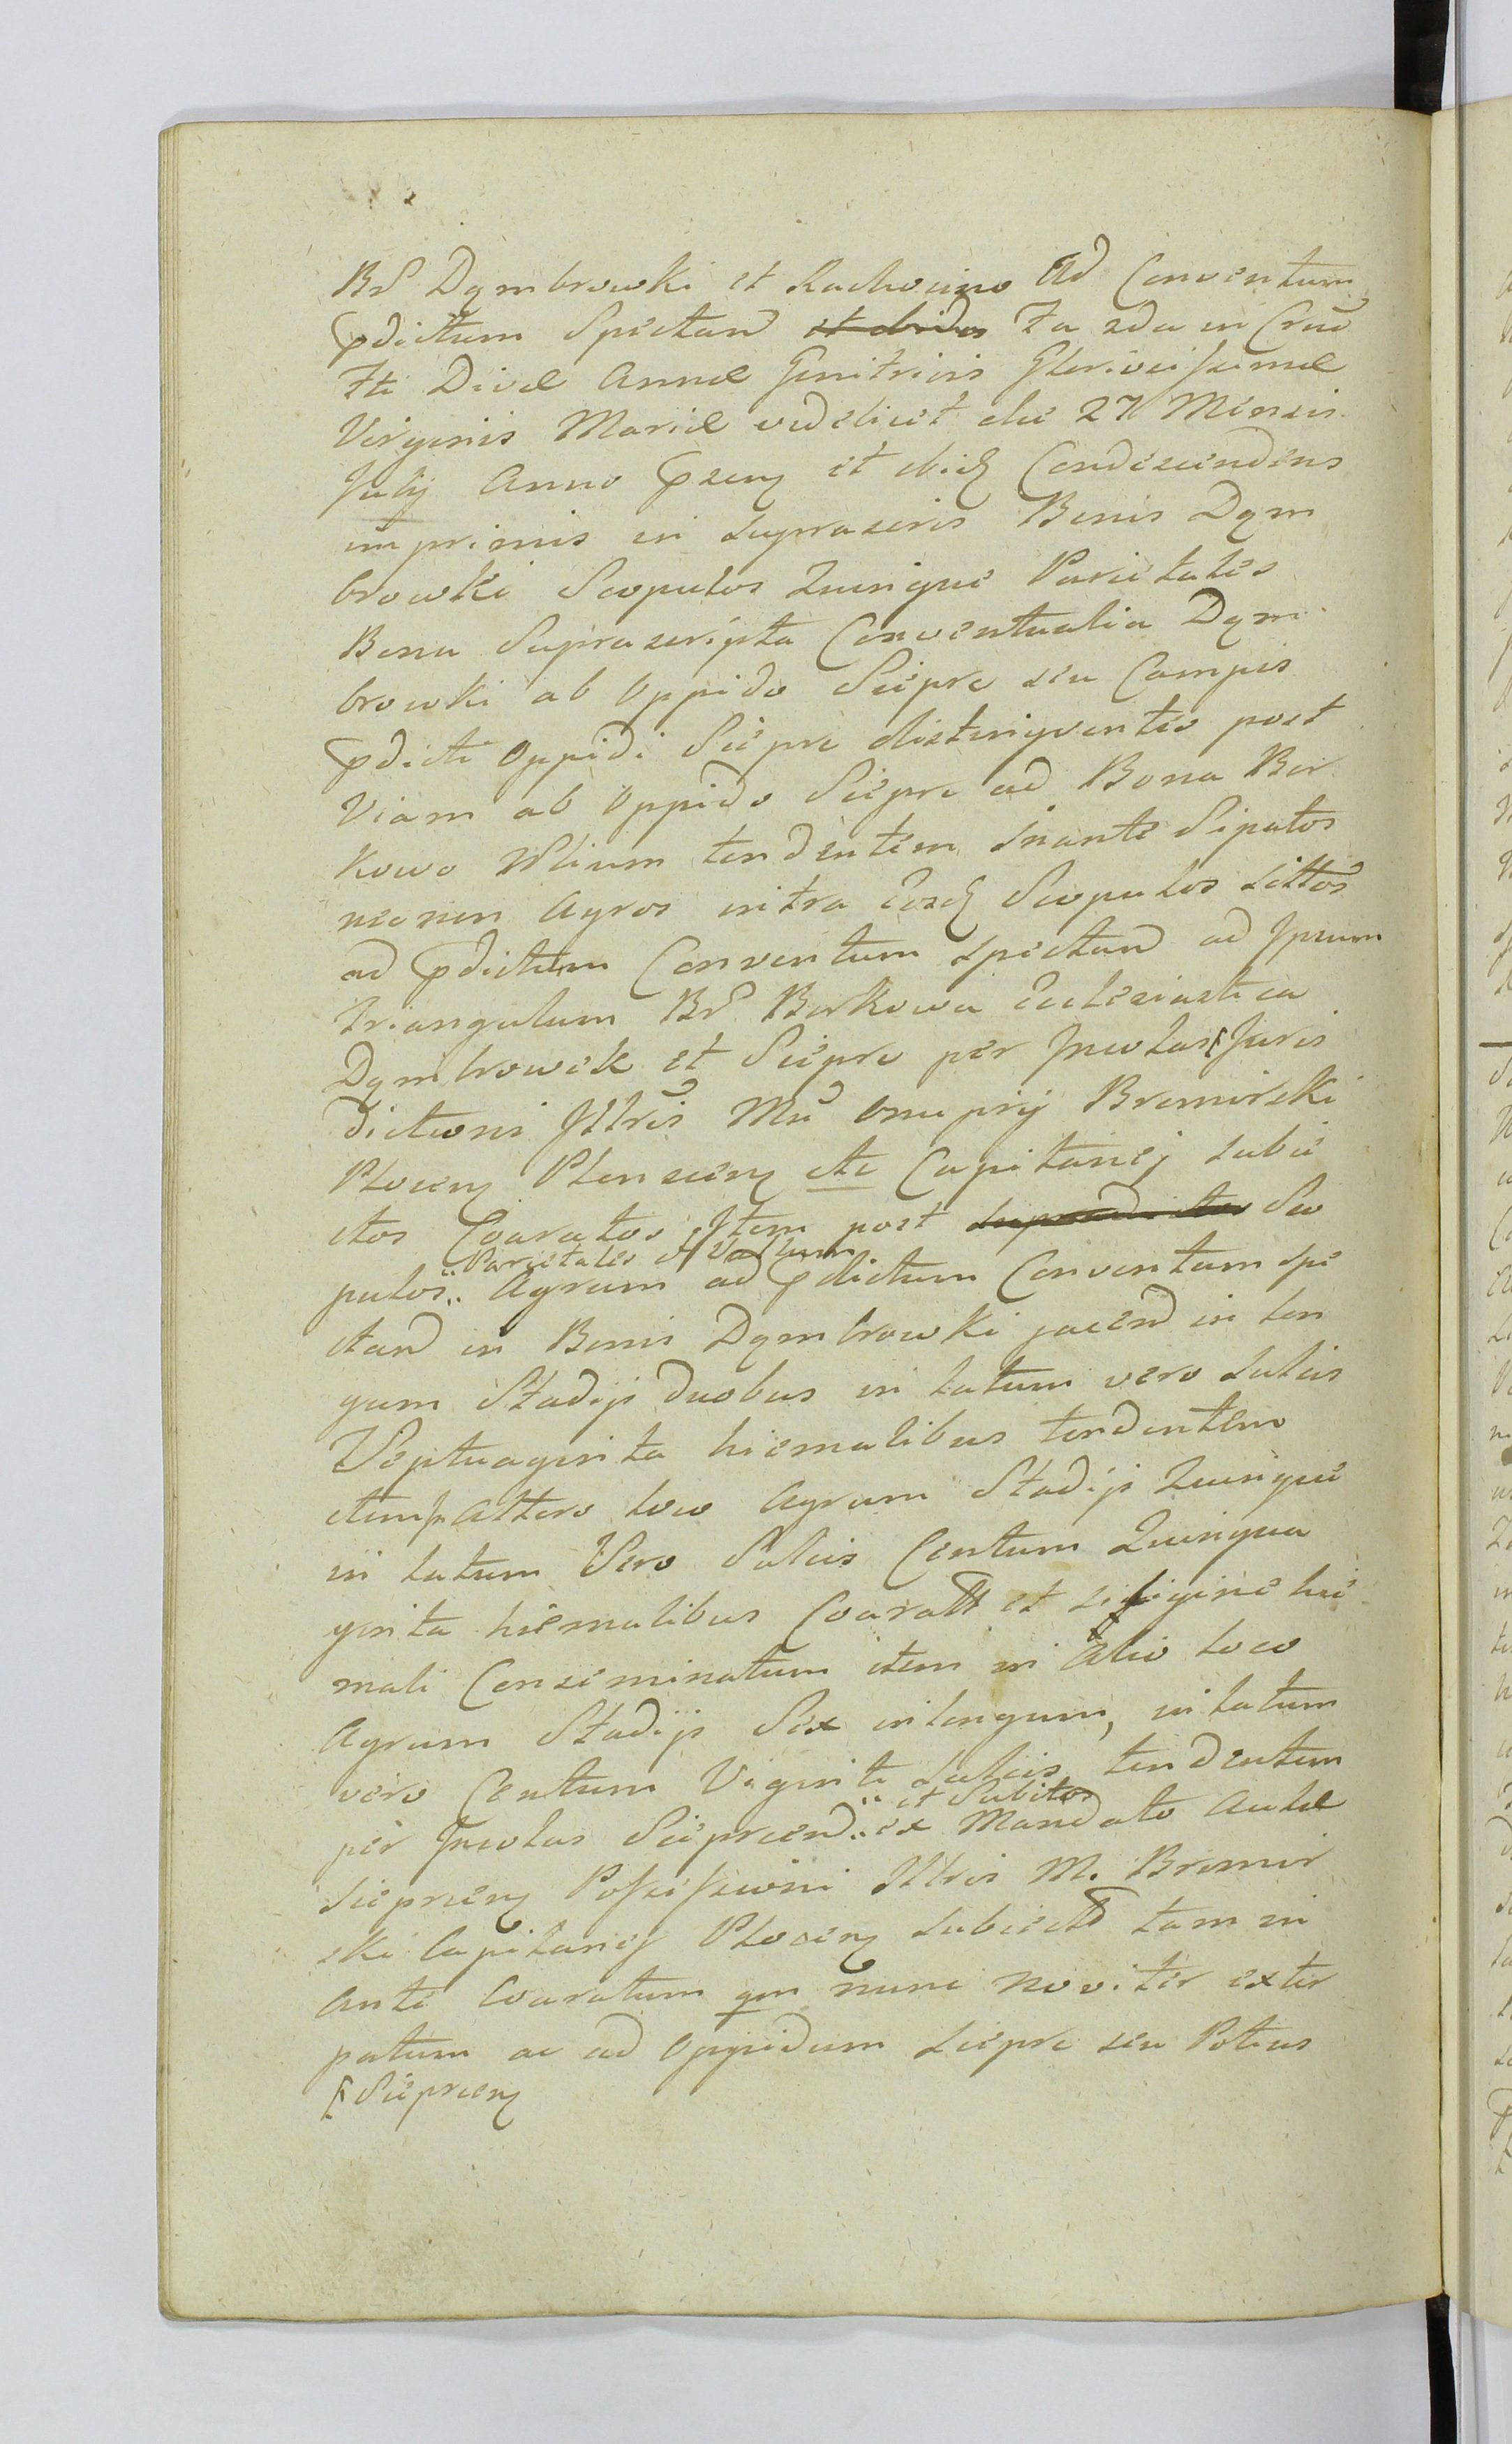 Bs Dąmbrowki et Rachocino Ad Conventum
pdictum Spectand et ibidem Fa 2da in Crũo
Fti Divæ Annæ Genitricis Gloriosissimæ
Virginis Mariæ videlicet die 27 Mensis
Julij Anno pzeng et diej Condescendens
imprimis in supraseris Bonis Dąm
browki Scopulos Quinque Parietales
Bona Suprascripta Conventualia Dąm
browki ab Oppido Sieprc seu Campis
pdicti Oppidi Sieprc distingventes post
Viam ab Oppido Sieprc ad Bona Bor
kowo Wlium tendentem Inante Sipatos
necnon Agros intra Eosd Scopulos Sittos
ad pdictum Conventum spectand ad Ipsum
Triangulum Bs Borkowa Ecclesiastica
Dąmbrowek et Sieprc per Incolas Juris
dictioni Illris Mu Onuprij Bromirski
Ploceng Plonsceng etc Capitanej subie
ctos Coaratos Item post suprad ictos Sco
pulos Parietales et Vallum Agrum ad pdictum Conventum spe
ctand in Bonis Dąmbrowki jacend in lon
gum Stadijs duobus in latum vero sulcis
Septuaginta hiemalibus tendentem
item Altero loco Agrum Stadijs Quinque
in latum Vero Sulcis Centum Quinqua
ginta hiemalibus Coaratt et siligine hie
mali Conseminatum item in Alio loco
Agrum Stadijs Sex in longum, in latum
vero Centum Viginti sulcis tendentem
per Incolas Sieprcend et Subitos ex Mandato Aulæ
Sieprceng Possessioni Illris M. Bromir
ski Capitanej Ploceng subiectos tam in
Ante Coaratum qm nunc noviter extir
patum ac ad Oppidum Sieprc seu Potius
Sieprceng